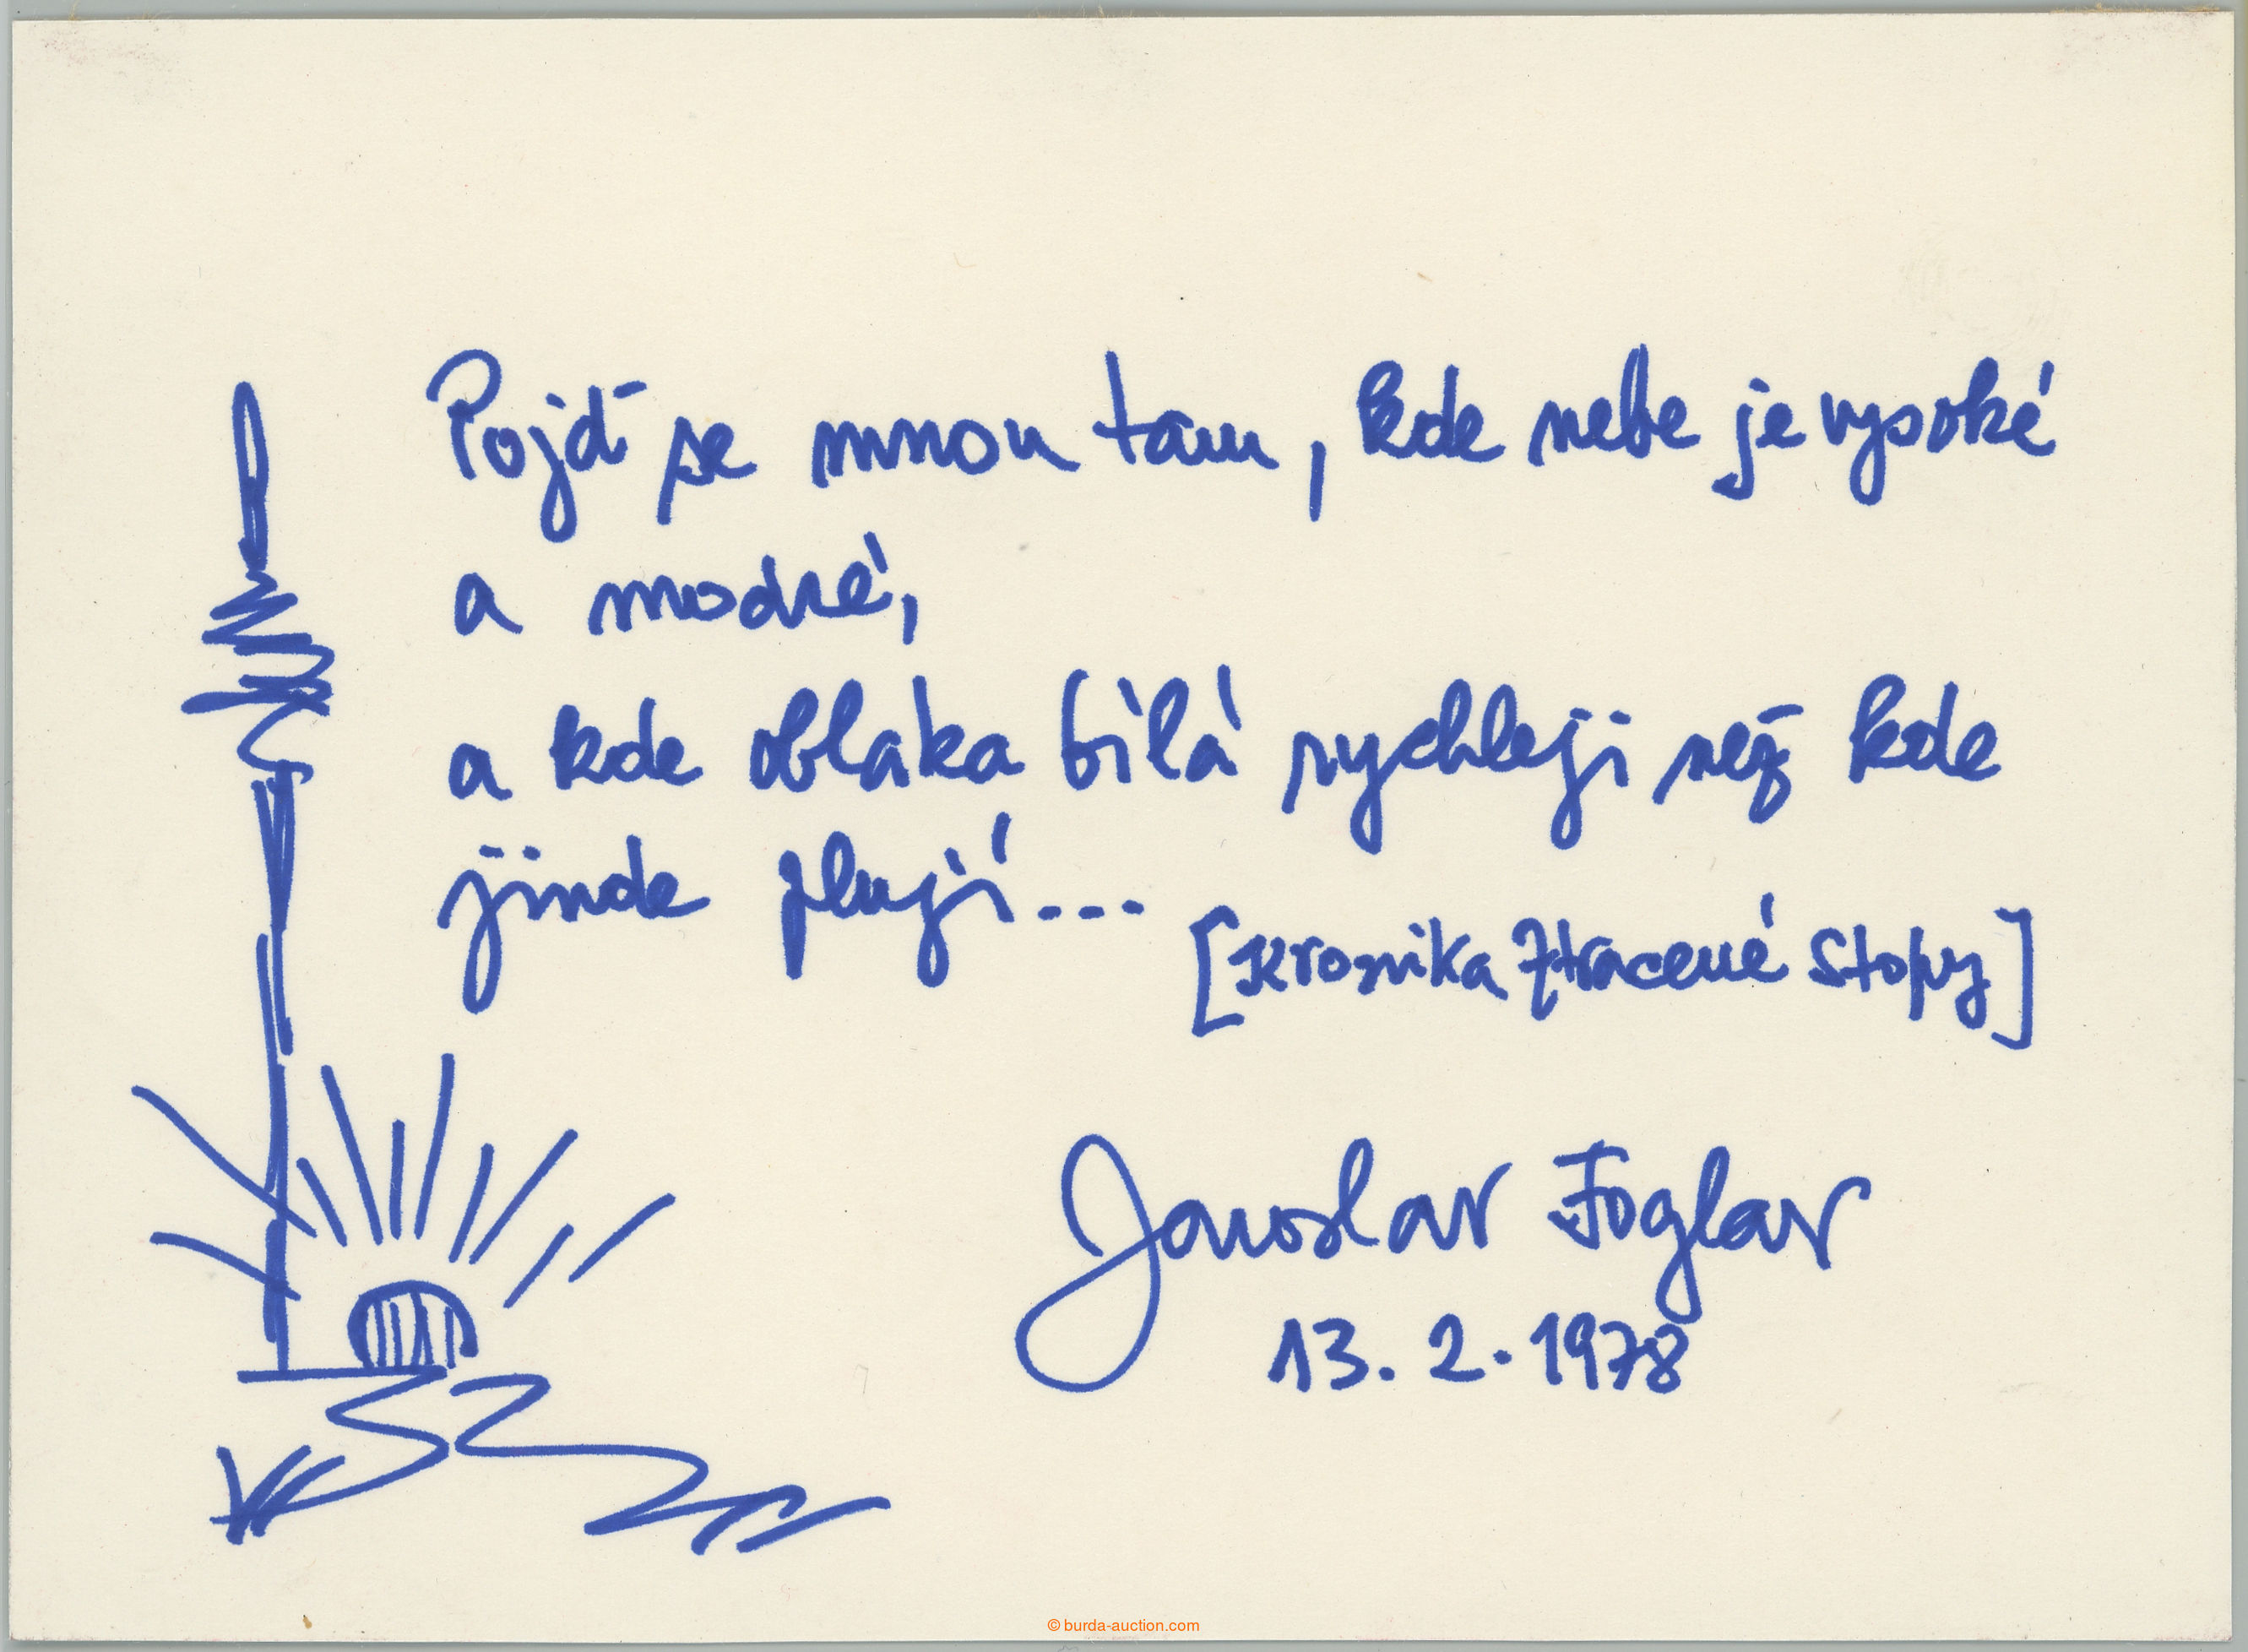 Pojď se mnou tam, kde nebe je vysoké
a modré,
a kde oblaka bílá rychleji než kde
jinde plují...
[Kronika Ztracené stopy]
Jaroslav Foglar
13. 2. 1978
© burda-auction.com